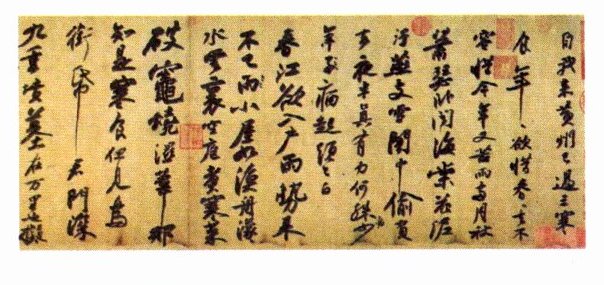 自我來黃州已過三寒
食年〻欲惜春〻去不
容惜今年又苦雨兩月秋
蕭瑟臥聞海棠花泥
汙燕支雪闇中偷負
去夜半真有力何殊病少
年子病起須已白
春江欲入戶雨勢來
不已雨小屋如漁舟濛
水雲裏空庖煮寒菜
破竈燒溼葦那
知是寒食但見烏
銜帋君門深
九重墳墓在万里也擬